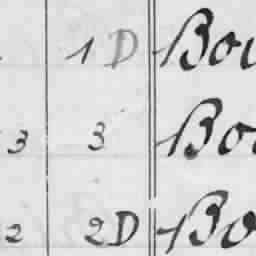 1 D Bou
3 3 Bou
2 2D Bo